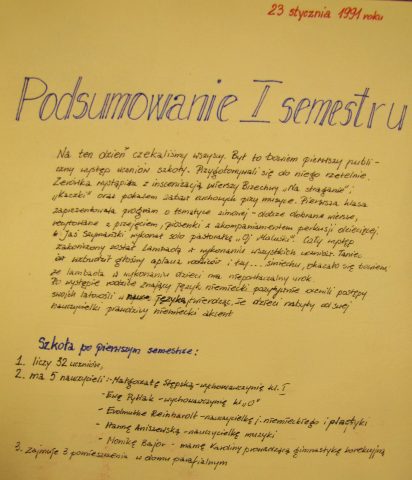 23 stycznia 1991 roku
Podsumowanie I semestru
Na ten dzień czekaliśmy wszyscy. Był to bowiem pierwszy publi-
czny występ uczniów szkoły. Przygotowywali się do niego rzetelnie.
Zerówka wystąpiła z inscenizacją wierszy Brzechwy „Na straganie" i
„Kaczki" oraz pokazem zabaw ruchowych przy muzyce. Pierwsza klasa
zaprezentowała program o tematyce zimowej - dobrze dobrane wiersze,
recytowane z przejęciem, piosenki z akompaniamentem perkusji dziecięcej.
Jaś Szymański wykonał solo pastorałkę „Oj Maluśki". Cały występ
zakończony został Lambadą w wykonaniu wszystkich uczniów. Taniec
ten wzbudził głośny aplauz rodziców i łzy... śmiechu, okazało się bowiem,
że lambada w wykonaniu dzieci ma niepowtarzalny urok.
Po występie rodzice znający język niemiecki pozytywnie ocenili postępy
swoich latorośli w nauce języka, twierdząc, że dzieci nabyły od swej
nauczycielki prawdziwy niemiecki akcent
Szkoła po pierwszym semestrze:
1. liczy 32 uczniów,
2. ma 5 nauczycieli: - Małgorzatę Stępską - wychowawczynię kl. I
- Ewę Rybak - wychowawczynię kl. „O"
- Evelmuthe Reinhardt - nauczycielkę j. niemieckiego i plastyki
- Hannę Aniszewską - nauczycielkę muzyki
- Monikę Bajor - mamę Karoliny prowadzącą gimnastykę korekcyjną
3. zajmuje 3 pomieszczenia w domu parafialnym